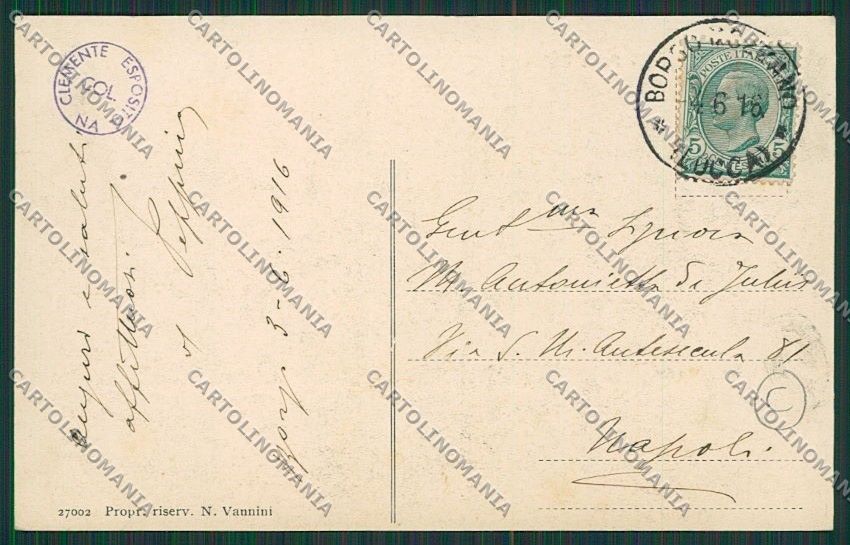 CLEMENTE ESPOSITO
COL
NA
Auguri e saluti
affettuosi
Peppino
3-6-1916
BORGO A MOZZANO
4.6.16
* (LUCCA) *
POSTE ITALIANE
5 CENT. 5
Gent.ma Signora
M. Antonietta di Julius
Via S. M. Antesecula 81
Napoli
27002 Propr. riserv. N. Vannini
CARTOLINOMANIA